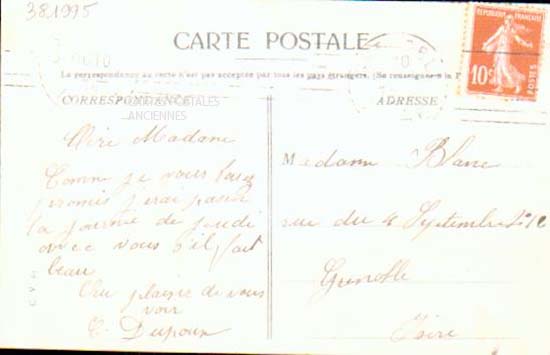 381995
CARTE POSTALE
RÉPUBLIQUE FRANÇAISE
10c
POSTES
La correspondance au recto n'est pas acceptée par tous les pays étrangers. (Se renseigner à la P
CORRESPONDANCE
ADRESSE
CARTES POSTALES
ANCIENNES
Chère Madame
Comme je vous l'avez
promis j'irai passer
la journée de jeudi
avec vous s'il fait
beau
Au plaisir de vous
voir
C. Dupoux
Madame Blanc
rue du 4 Septembre
Grenoble
Isère